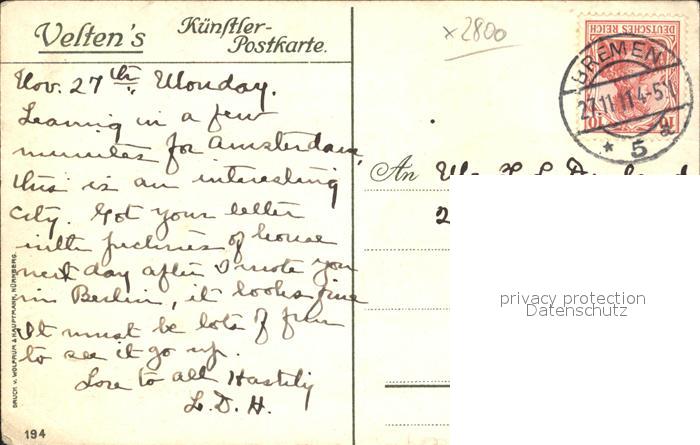 Velten's Künstler-
Postkarte.
× 2800
DEUTSCHES REICH
10 10
BREMEN
27.11.11.4-5N.
* 5 a
Nov. 27th Monday.
Leaving in a few
minutes for Amsterdam,
this is an interesting
city. Got your letter
with pictures of house
next day after I wrote you
in Berlin, it looks fine
It must be lots of fun
to see it go up.
Love to all Hastily
L. D. H.
An
2
privacy protection
Datenschutz
DRUCK v. WOLFRUM & HAUPTMANN, NÜRNBERG.
194